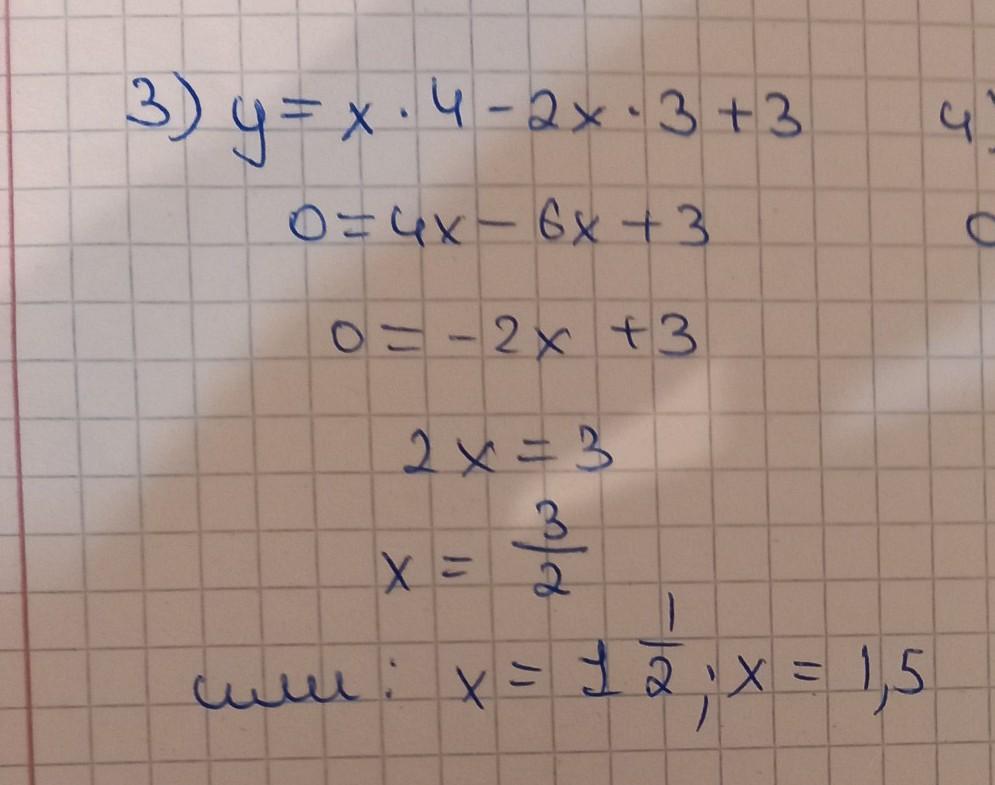 3) y = x · 4 - 2x · 3 + 3
4)
0 = 4x - 6x + 3
0 = -2x + 3
2x = 3
x = 3/2
или: x = 1 1/2; x = 1,5